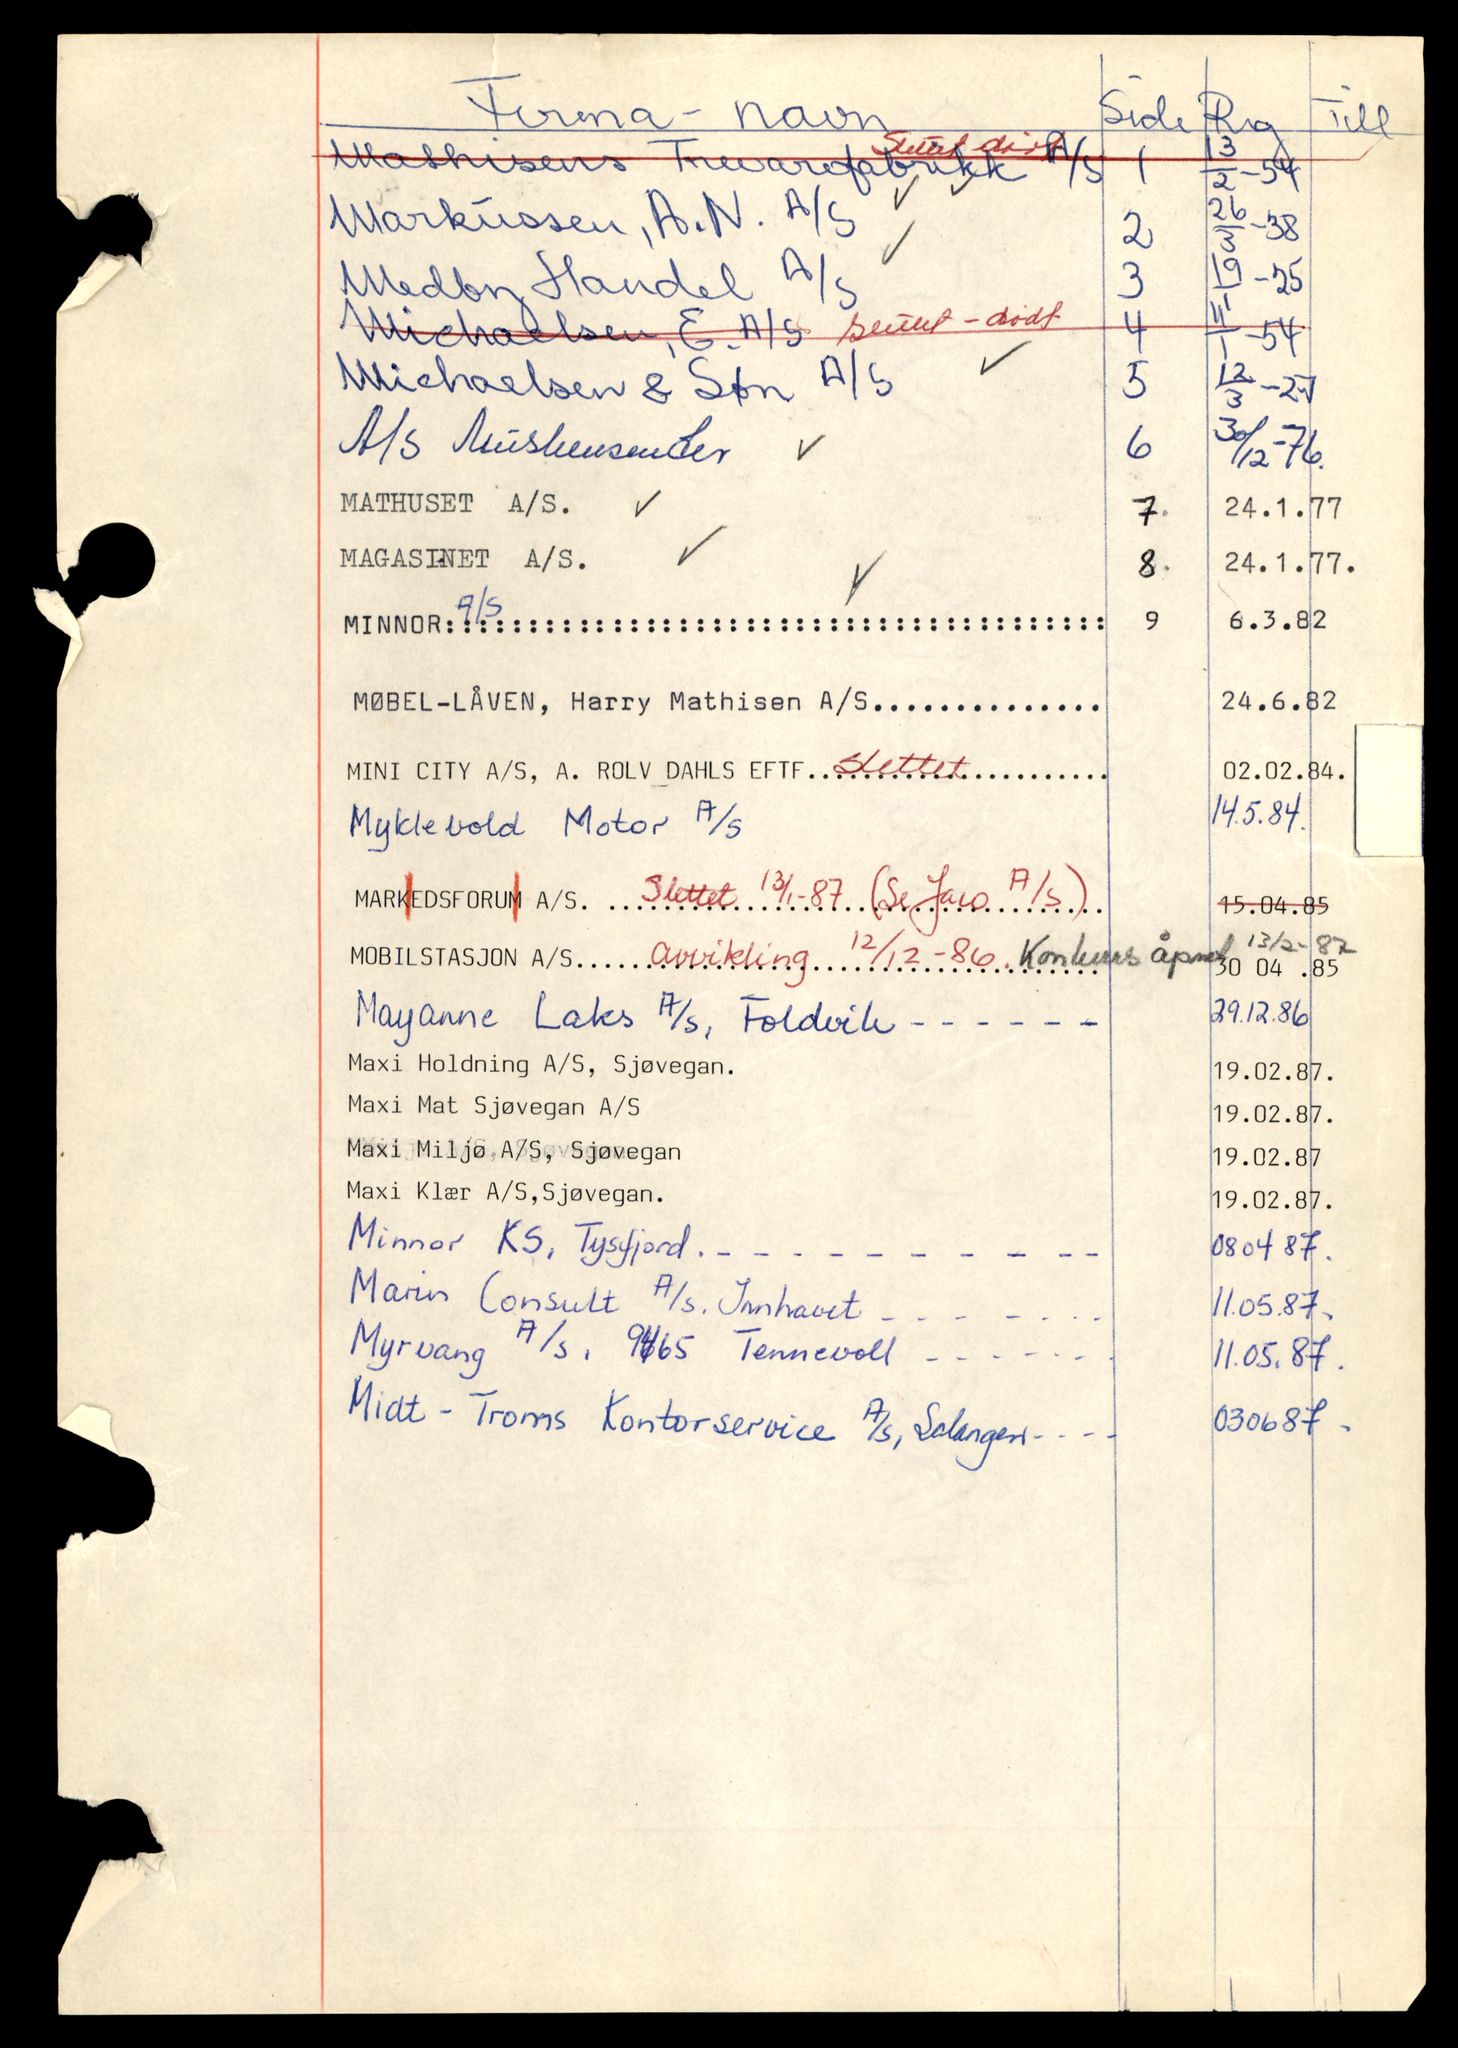 Firma - navn Side Reg Till
Mathisens Trevarefabrikk A/S slettet død 1 13/2-54
Markussen, A.N. A/S ✓ ✓ 2 26/3-38
Medby Handel A/S ✓ 3 19-25
Michaelsen, E. A/S slettet - død 4 11/1-54
Michaelsen & Søn A/S ✓ 5 12/3-27
A/S ✓ 6 30/12-76.
MATHUSET A/S. ✓ 7. 24.1.77
MAGASINET A/S. ✓ 8. 24.1.77.
MINNOR A/S ✓ 9 6.3.82
MØBEL-LÅVEN, Harry Mathisen A/S.............. 24.6.82
MINI CITY A/S, A. ROLV DAHLS EFTF.. Slettet ......... 02.02.84.
Myklevold Motor A/S 14.5.84.
MARKEDSFORUM A/S. Slettet 13/1-87 (Se Jaco A/S) 15.04.85
MOBILSTASJON A/S.... Avvikling 12/12-86. Konkurs åpnet 13/2-87 30 04 .85
Mayanne Laks A/S, Foldvik - - - - - - 29.12.86
Maxi Holdning A/S, Sjøvegan. 19.02.87.
Maxi Mat Sjøvegan A/S 19.02.87.
Maxi Miljø A/S, Sjøvegan 19.02.87
Maxi Klær A/S,Sjøvegan. 19.02.87.
Minnor KS, Tysfjord. - - - - - - - - - - 080487.
Marin Consult A/S. Innhavet - - - - - - - 11.05.87.
Myrvang A/S, 9465 Tennevoll - - - - - - 11.05.87.
Midt - Troms Kontorservice A/S, Salangen - - - - 030687.